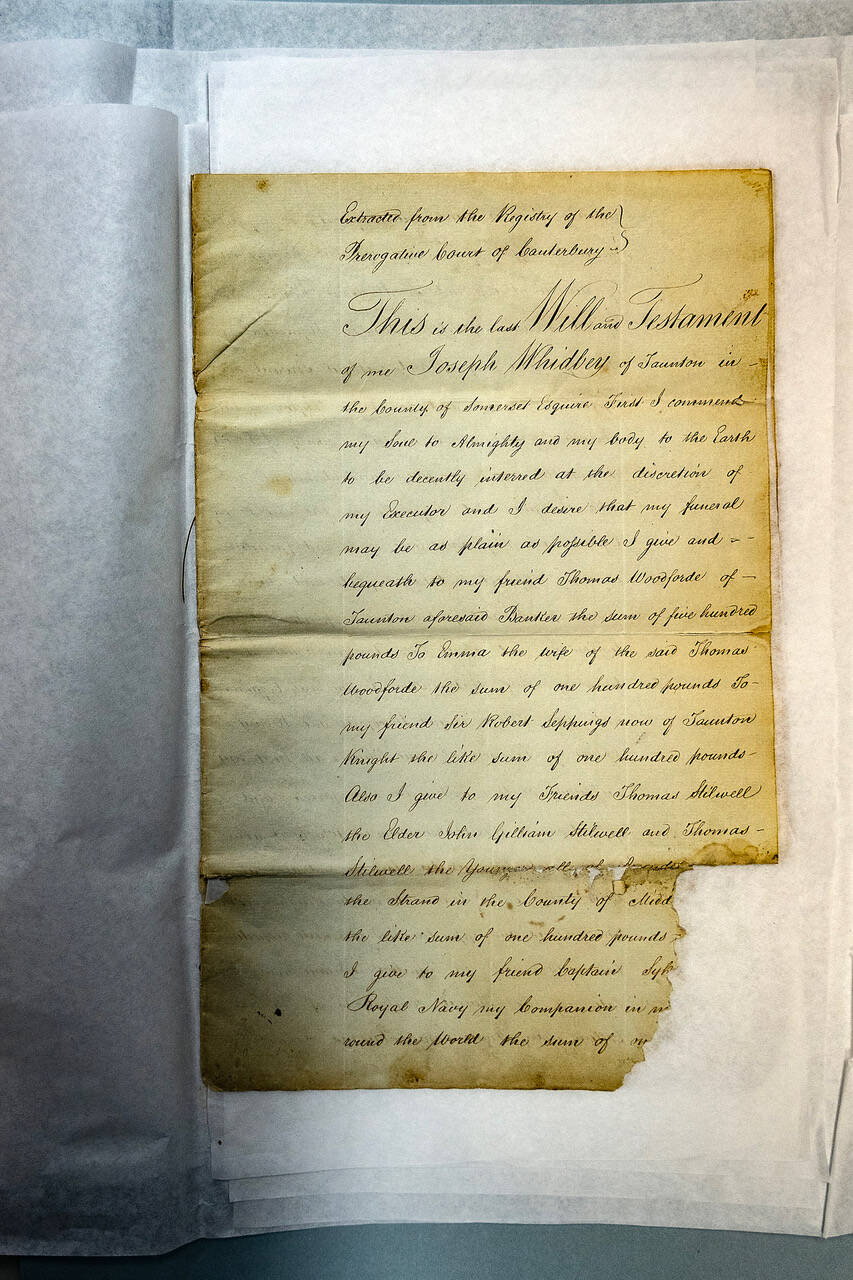 Extracted from the Registry of the
Prerogative Court of Canterbury
This is the last Will and Testament
of me Joseph Whidbey of Taunton in
the County of Somerset Esquire First I commend
my Soul to Almighty and my body to the Earth
to be decently interred at the discretion of
my Executor and I desire that my funeral
may be as plain as possible I give and
bequeath to my friend Thomas Woodforde of
Taunton aforesaid Banker the sum of five hundred
pounds To Emma the wife of the said Thomas
Woodforde the sum of one hundred pounds To
my friend Sir Robert Seppings now of Taunton
Knight the like sum of one hundred pounds
Also I give to my Friends Thomas Stilwell
the Elder John Gilliam Stilwell and Thomas
Stilwell the Younger all of
the Strand in the County of Midd
the like sum of one hundred pounds
I give to my friend Captain Syk
Royal Navy my Companion in
round the World the sum of